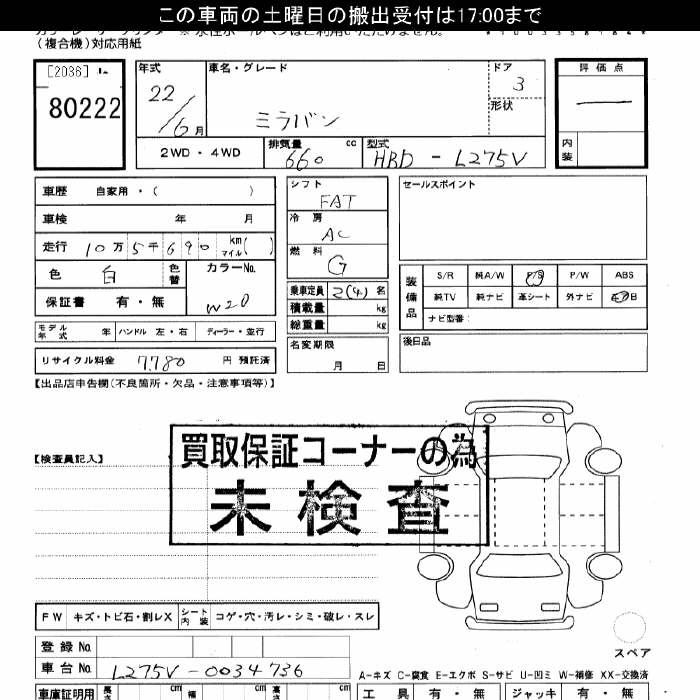 この車両の土曜日の搬出受付は17:00まで
(複合機)対応用紙
[2036]
80222
年式 車名・グレード ドア 評価点
22/6月 ミラバン 3 形状 ―
2WD・4WD 排気量 660 cc 型式 HBD-L275V 内装
車歴 自家用・( )
車検 年 月
走行 10万5千690 km マイル( )
色 白 色替 カラーNo. W20
保証書 有・無
モデル年式 年 ハンドル 左・右 ディーラー・並行
リサイクル料金 7780 円 預託済
シフト FAT
冷房 AC
燃料 G
乗車定員 2(4)名
積載量 kg
総重量 kg
名変期限 月 日
セールスポイント
装備品 S/R 純A/W P/S P/W ABS
純TV 純ナビ 革シート 外ナビ
ナビ型番:
後日品
【出品店申告欄(不良箇所・欠品・注意事項等)】
買取保証コーナーの為
未検査
【検査員記入】
FW キズ・トビ石・割レX シート内装 コゲ・穴・汚レ・シミ・破レ・スレ
登録No.
車台No. L275V-0034736
スペア
A-キズ C-腐食 E-エクボ S-サビ U-凹ミ W-補修 XX-交換済
車庫証明用 長さ cm 幅 cm 高さ cm 工具 有・無 ジャッキ 有・無